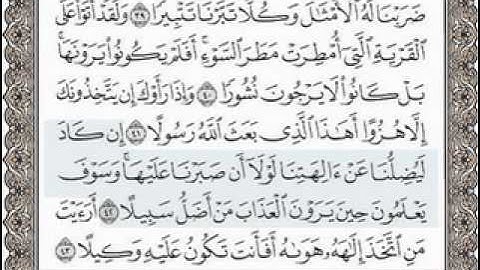 ضَرَبْنَا لَهُ ٱلْأَمْثَٰلَ وَكُلًّا تَبَّرْنَا تَتْبِيرًا ٣٩ وَلَقَدْ أَتَوْا۟ عَلَى
ٱلْقَرْيَةِ ٱلَّتِىٓ أُمْطِرَتْ مَطَرَ ٱلسَّوْءِ أَفَلَمْ يَكُونُوا۟ يَرَوْنَهَا
بَلْ كَانُوا۟ لَا يَرْجُونَ نُشُورًا ٤٠ وَإِذَا رَأَوْكَ إِن يَتَّخِذُونَكَ
إِلَّا هُزُوًا أَهَٰذَا ٱلَّذِى بَعَثَ ٱللَّهُ رَسُولًا ٤١ إِن كَادَ
لَيُضِلُّنَا عَنْ ءَالِهَتِنَا لَوْلَآ أَن صَبَرْنَا عَلَيْهَا وَسَوْفَ
يَعْلَمُونَ حِينَ يَرَوْنَ ٱلْعَذَابَ مَنْ أَضَلُّ سَبِيلًا ٤٢ أَرَءَيْتَ
مَنِ ٱتَّخَذَ إِلَٰهَهُۥ هَوَىٰهُ أَفَأَنتَ تَكُونُ عَلَيْهِ وَكِيلًا ٤٣